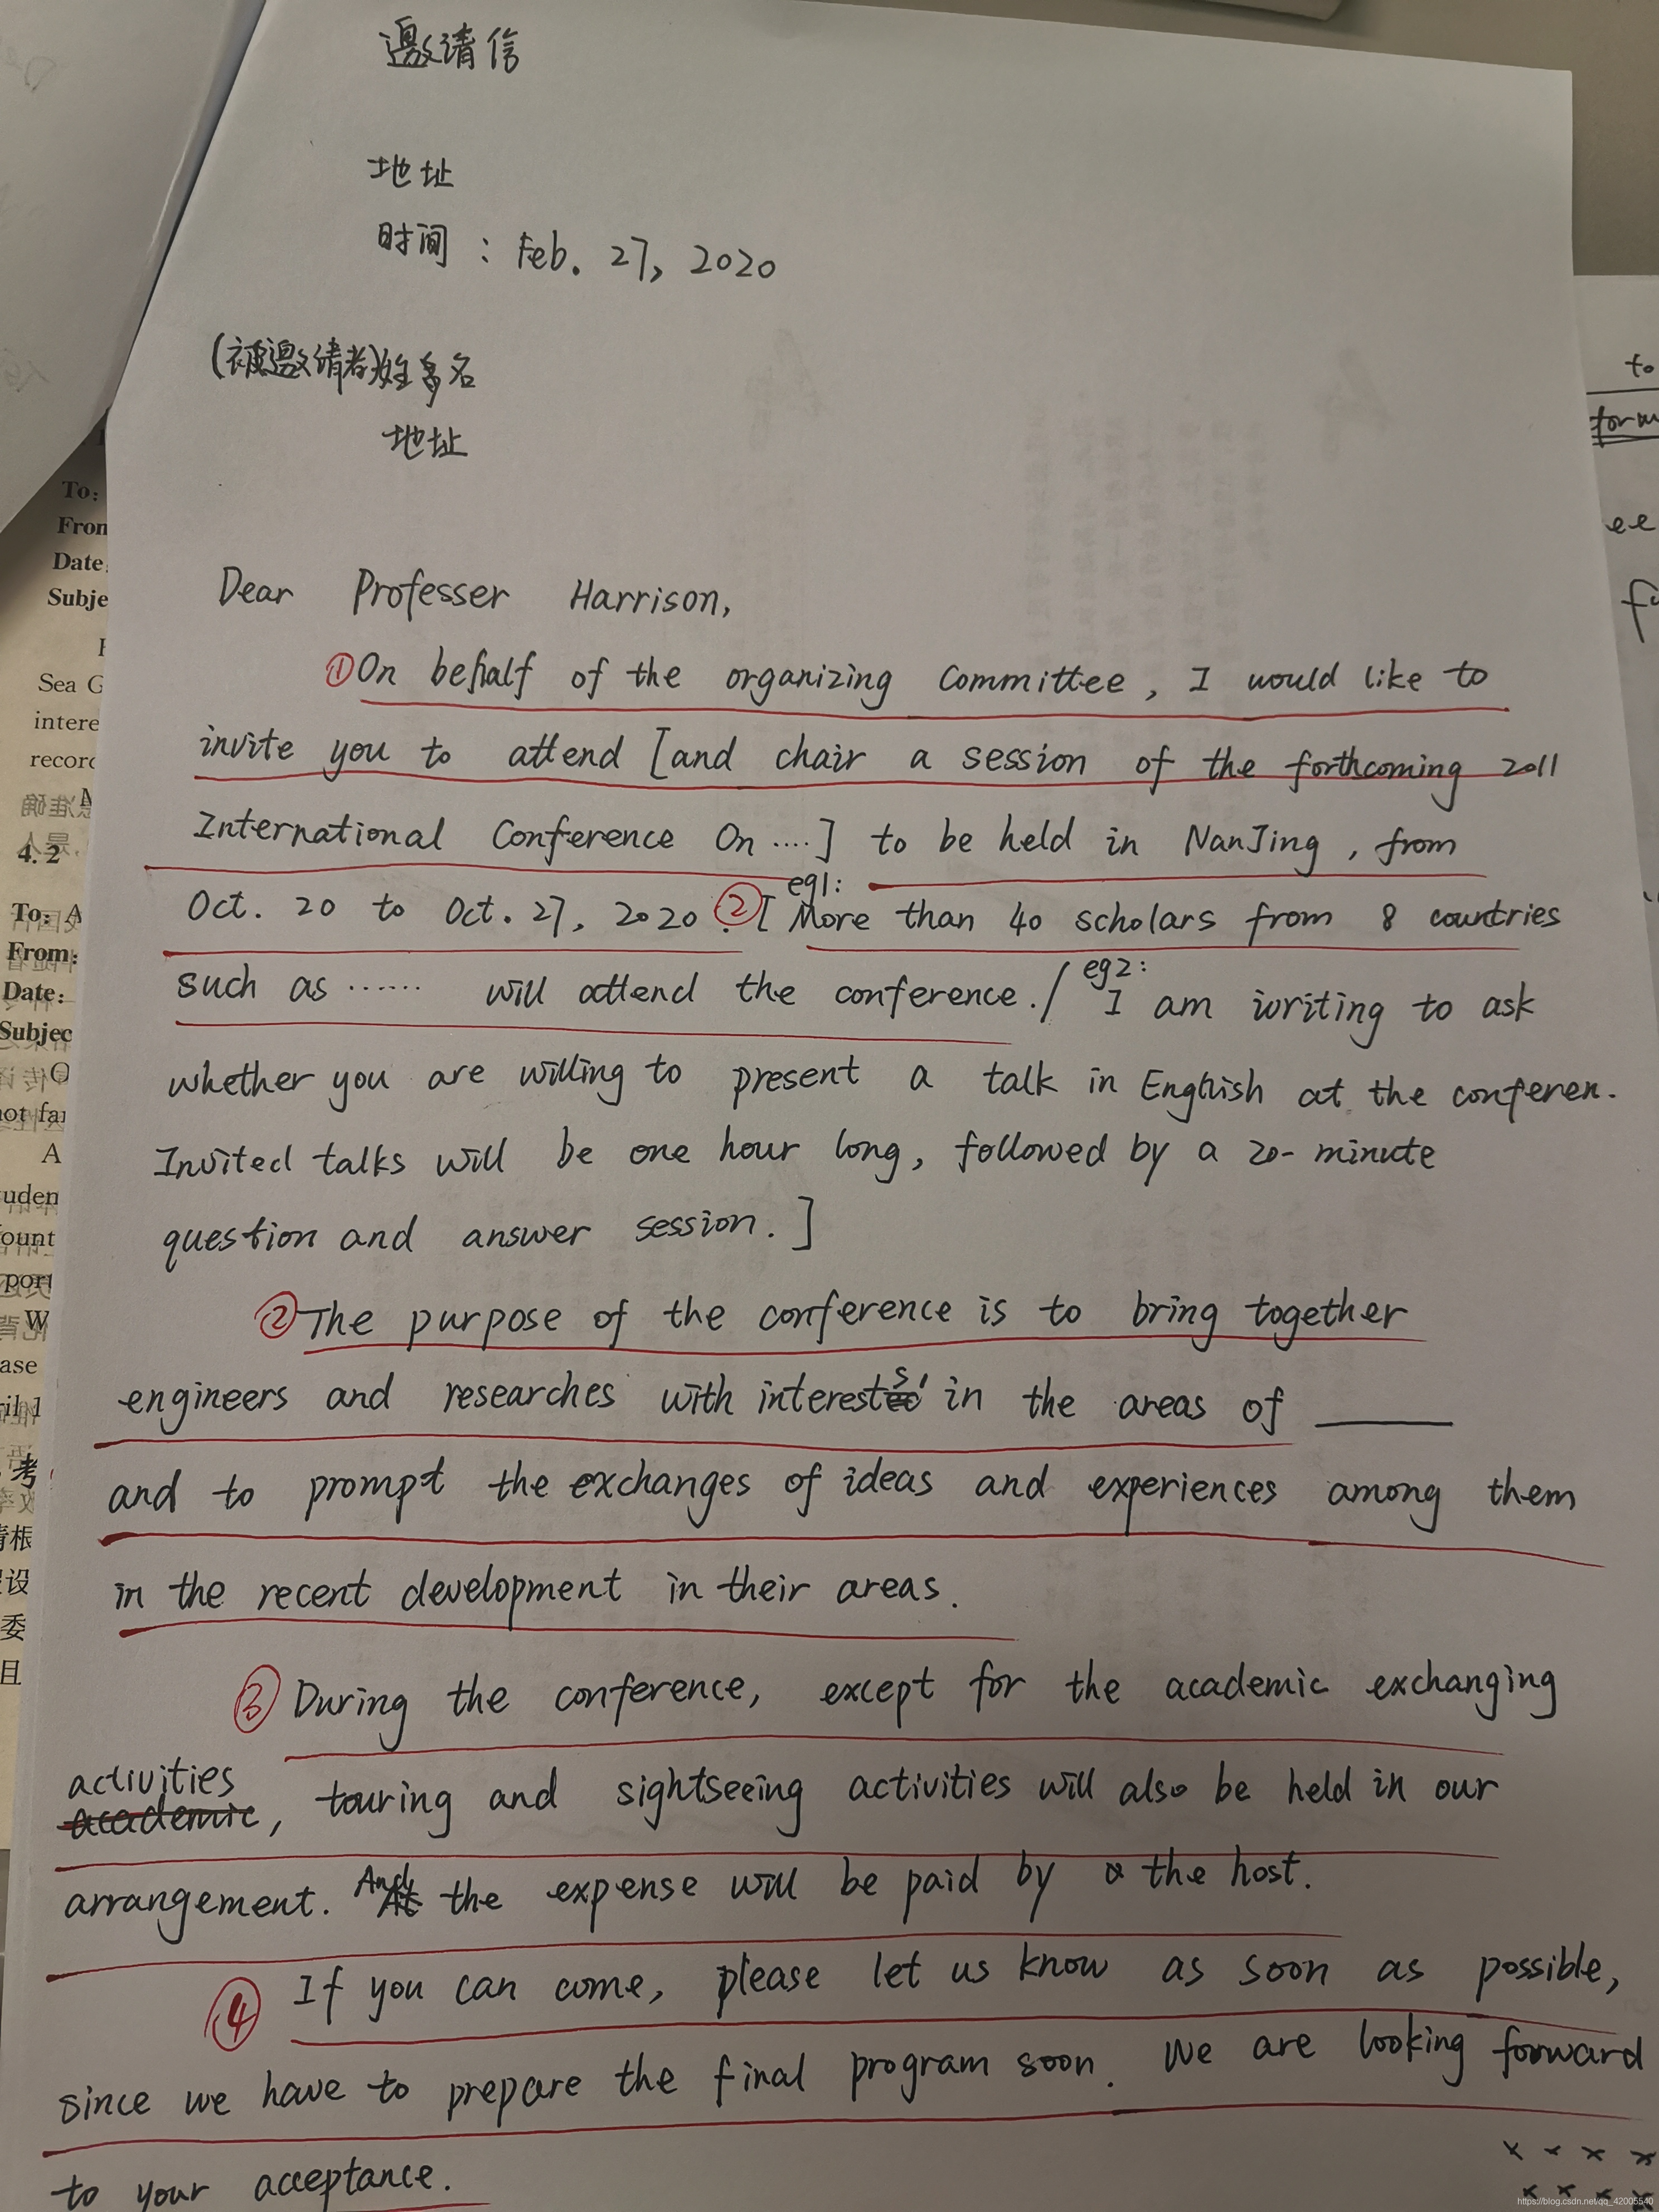 邀请信
地址
时间：Feb. 27, 2020
(被邀请者)姓名
地址
Dear Professer Harrison,
①On behalf of the organizing Committee, I would like to
invite you to attend [and chair a session of the forthcoming 2011
International Conference On ....] to be held in NanJing, from
Oct. 20 to Oct. 27, 2020. ②[ eg1: More than 40 scholars from 8 countries
such as ...... will attend the conference. / eg2: I am writing to ask
whether you are willing to present a talk in English at the conferen.
Invited talks will be one hour long, followed by a 20-minute
question and answer session.]
②The purpose of the conference is to bring together
engineers and researches with interests' in the areas of ______
and to prompt the exchanges of ideas and experiences among them
in the recent development in their areas.
③ During the conference, except for the academic exchanging
activities
academic, touring and sightseeing activities will also be held in our
arrangement. And the expense will be paid by the host.
④ If you can come, please let us know as soon as possible,
since we have to prepare the final program soon. We are looking forward
to your acceptance.
To:
From
Date:
Subje
Sea G
intere
record
4.2
To: A
From:
Date:
Subjec
not fa
A
uden
ount
port
W
ase
ril 1
考
请根
设
委
且
to
form
ee
https://blog.csdn.net/qq_42005540